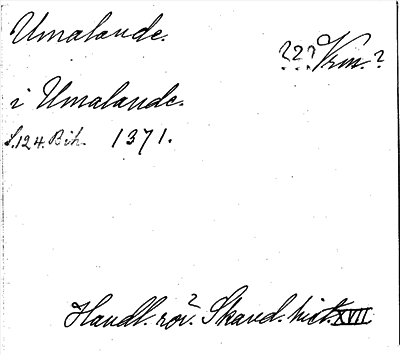 Umalande.
??? Vrm.?
i Umalande.
S.124. Bih. 1371.
Handl. rör.? Skand. hist. XVII